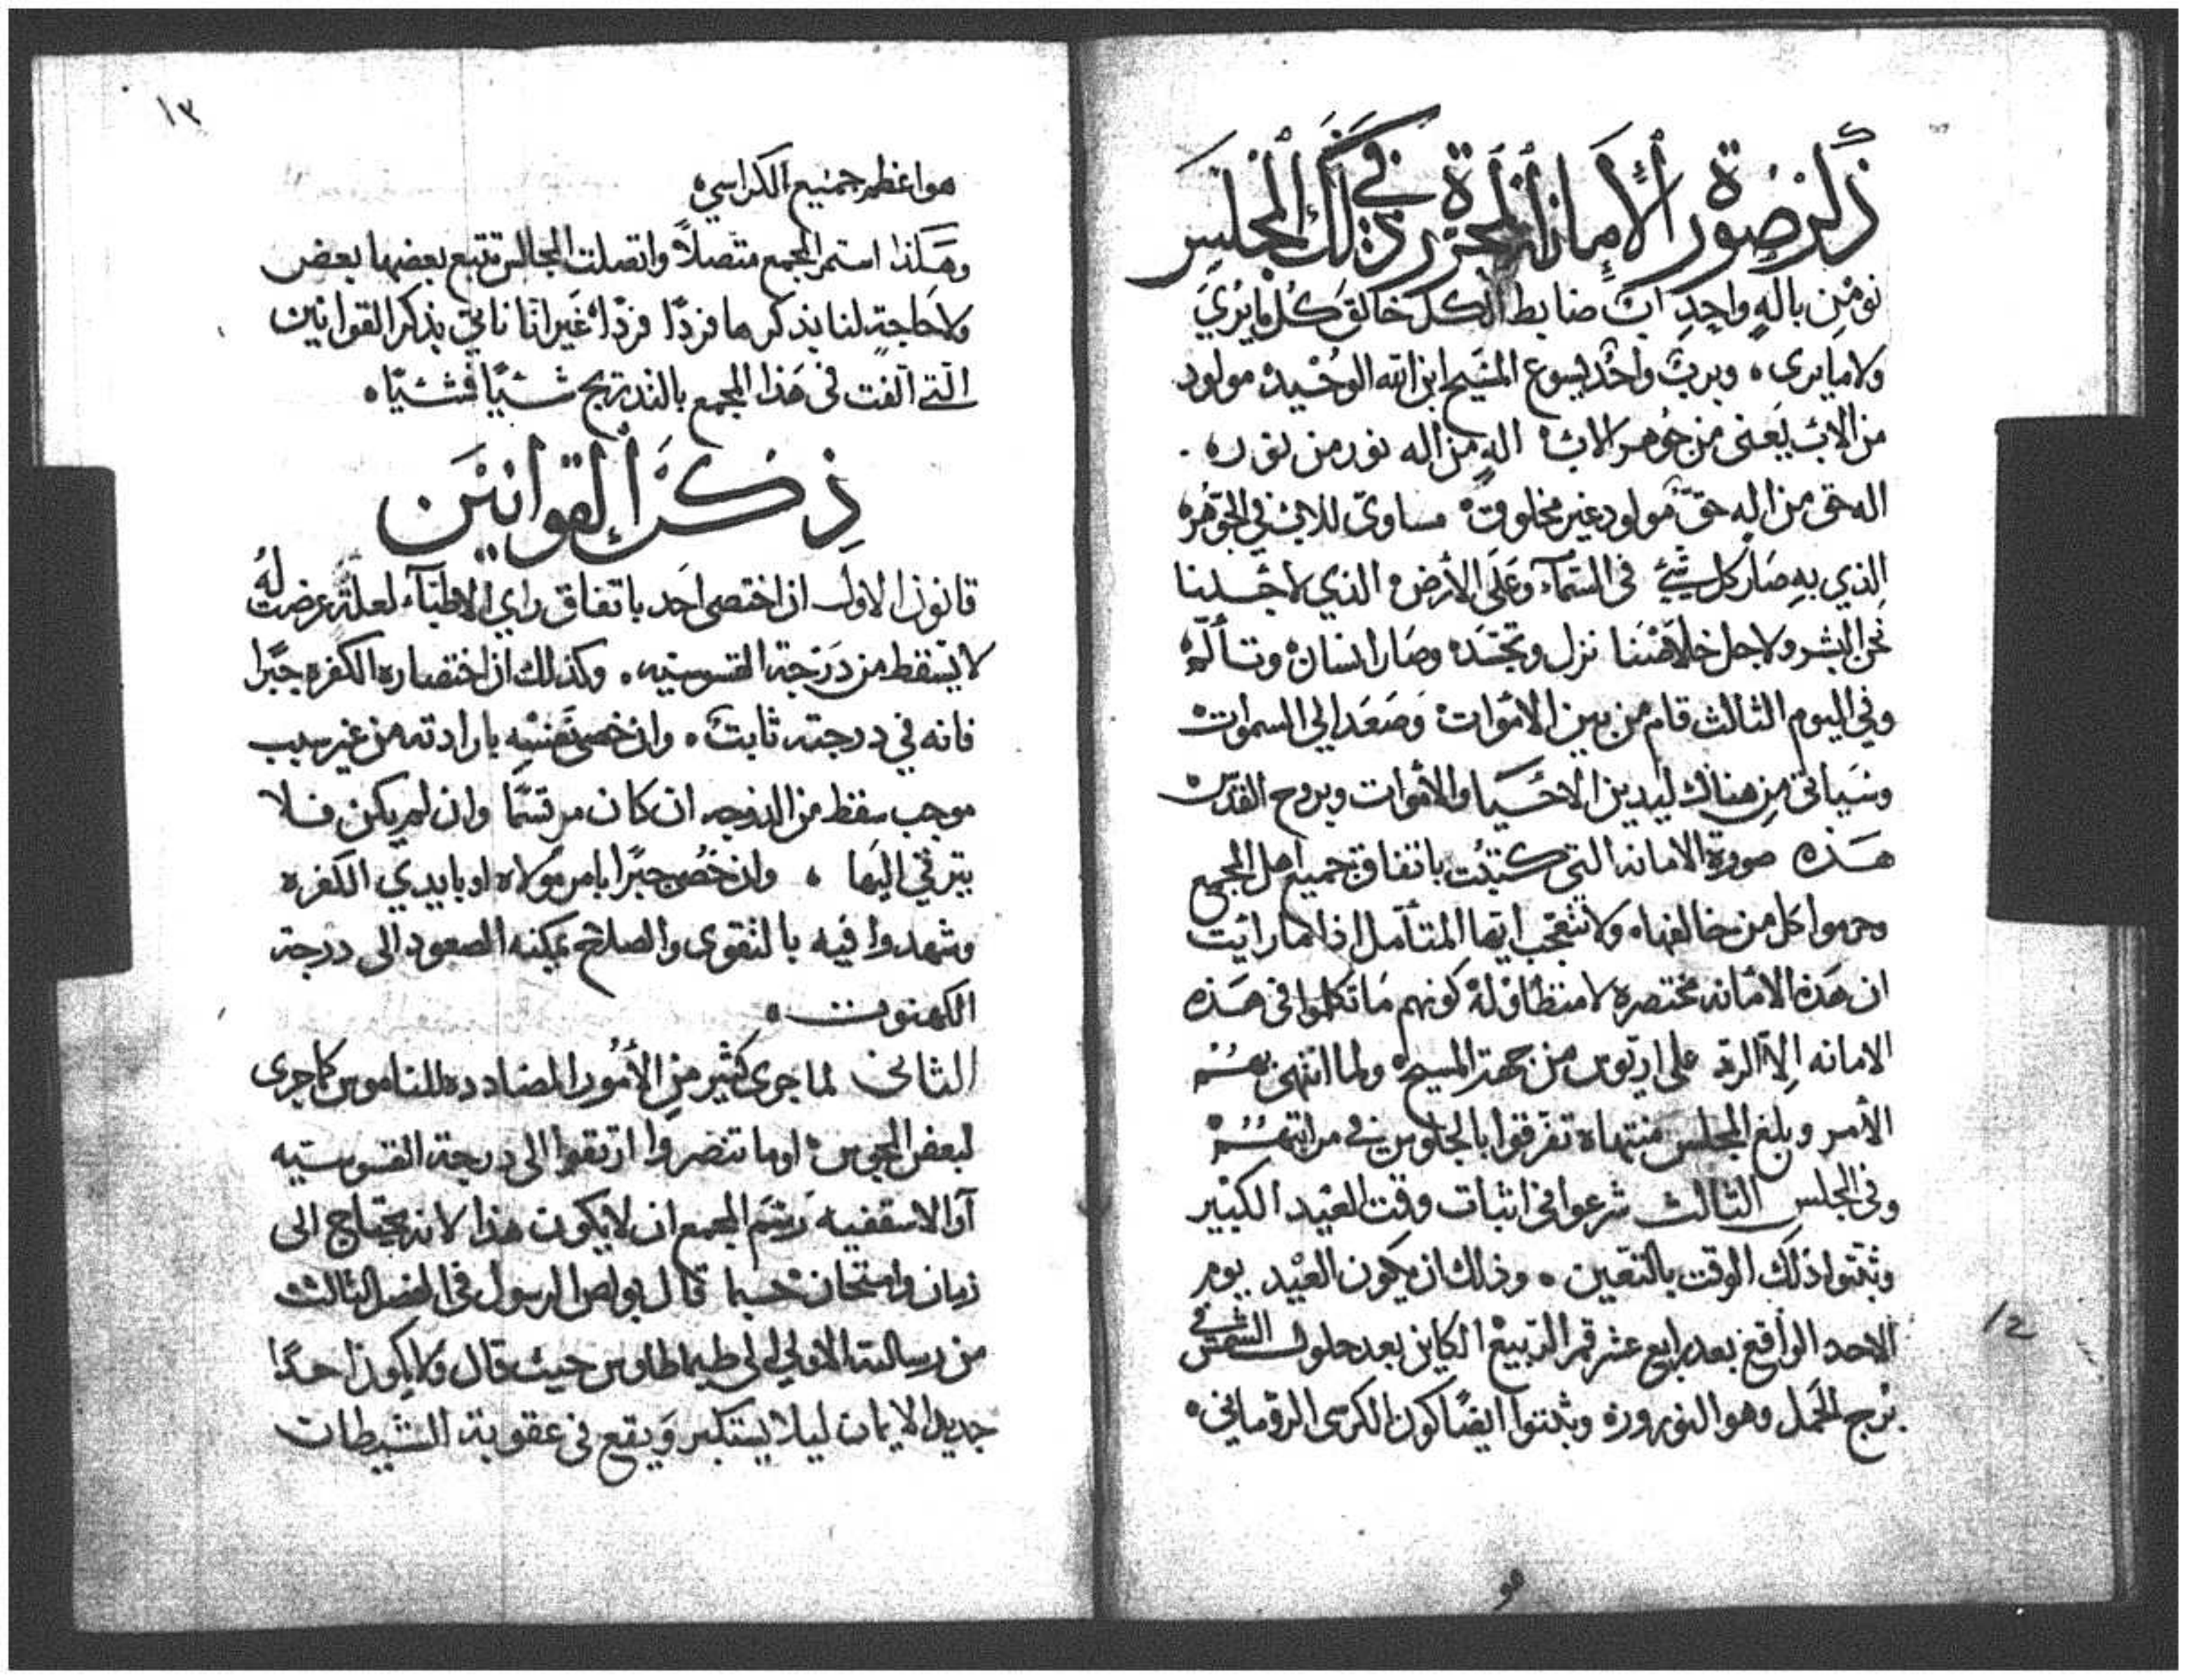 ذكر صورة الأمانة المحررة في ذلك المجلس
نومن باله واحد اب ضابط الكل خالق كل ما يري
ولا ما يرى ، وبرب واحد يسوع المسيح ابن الله الوحيد مولود
من الاب يعنى من جوهر الاب اله من اله نور من نور ه
اله حق من اله حق مولود غير مخلوق مساوي للاب في الجوهر ه
الذي به صار كل شئ في السمآء وعلى الأرض الذي لاجلنا
نحن البشر ولاجل خلاصنا نزل وتجسد وصار انسان وتألم
وفي اليوم الثالث قام من بين الاموات وصعد الي السموات
وسياتي من هناك ليدين الاحيا والأموات وبروح القدس
هذه صورة الامانه التي كتبت باتفاق جميع اهل المجمع
وحرموا كل من خالفها ه ولا تتعجب ايها المتأمل اذا ما رايت
ان هذه الامانه مختصره لا منطاوله كونهم ما تكلموا في هذه
الامانه إلا الرد على اريوس من جهة المسيح ولما انتهى بهم
الأمر وبلغ المجلس منتهاه تفرقوا بالجلوس في مراتبهم
وفى المجلس الثالث شرعوا في اثبات وقت العيد الكبير
وثبتوا ذلك الوقت بالتعين ه وذلك ان يكون العيد يوم
الاحد الواقع بعد رابع عشر قمر التربيع الكاين بعد حلول الشمس في
برج الحمل وهو النوروز ه وثبتوا ايضا كون الكرسى الرومانى ه
12
١٣
هو اعظم جميع الكراسي ه
وهكذا استمر المجمع متصلاً واتصلت المجالس تتبع بعضها بعض
ولا حاجة لنا بذكرها فردًا فردًا غير اننا ناتي بذكر القوانين
الّتي الّفت في هذا المجمع بالتدريج شيًا فشيًا ه
ذِكر القوانين
قانون الاول ان اختصى احد باتفاق راي الاطبآء لعلة عرضت له
لا يسقط من درجة القسوسيه ه وكذلك ان اختصاره الكفره جبرًا
فانه في درجته ثابت ه وان خصى نفسه بارادته من غير سبب
موجب سقط من الدرجه ان كان مرتسمًا وان لم يكن فلا
يترقي اليها ه وان خُصى جبرًا بامر مولاه او بايدي الكفره
وشهدوا فيه بالتقوى والصلاح يمكنه الصعود الى درجة
الكهنوت ه
الثاني لما جرى كثير من الأمور المضادده للناموس كما جرى
لبعض المجوس او ما تنصروا ارتقوا الى درجة القسوسيه
او الاسقفيه رسم المجمع ان لا يكون هذا لانه يحتاج الى
زمان وامتحان حسبما قال بولص الرسول في الفصل الثالث
من رسالته الاولي الى طيماطاوس حيث قال ولا يكون احدًا
جديد الايمان ليلا يستكبر ويقع في عقوبة الشيطان